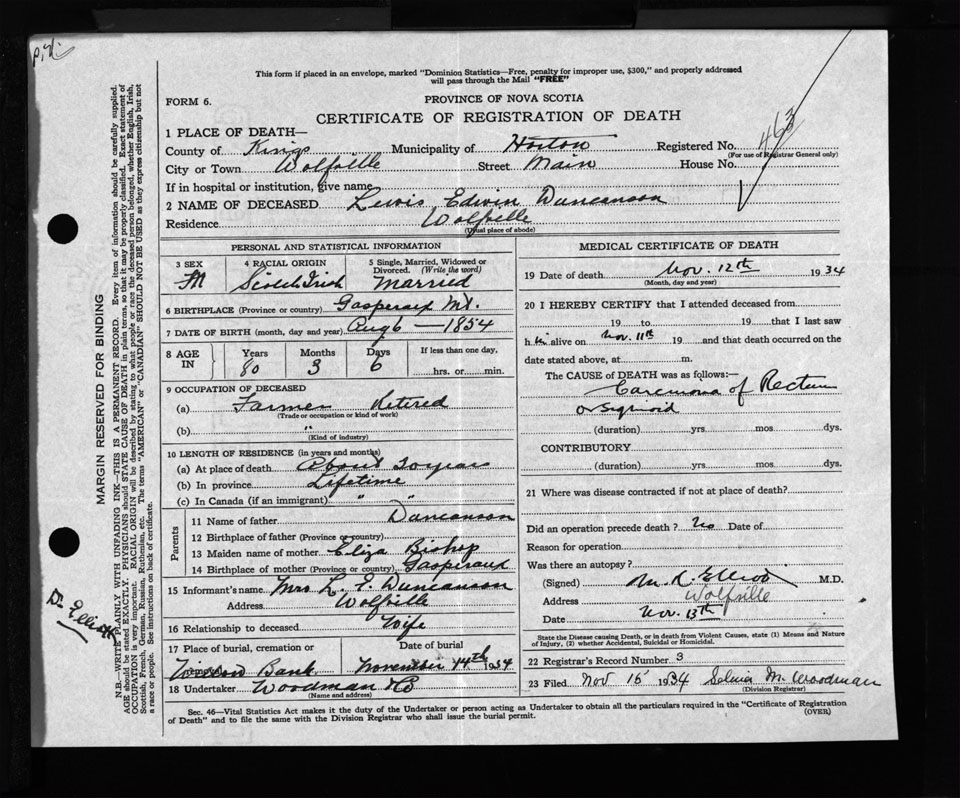 This form if placed in an envelope, marked "Dominion Statistics—Free, penalty for improper use, $300," and properly addressed
will pass through the Mail "FREE"
FORM 6.
PROVINCE OF NOVA SCOTIA
CERTIFICATE OF REGISTRATION OF DEATH
463
1 PLACE OF DEATH—
County of Kings Municipality of Horton Registered No.
(For use of Registrar General only)
City or Town Wolfville Street Main House No.
If in hospital or institution, give name
2 NAME OF DECEASED Lewis Edwin Duncanson
Residence Wolfville
(Usual place of abode)
PERSONAL AND STATISTICAL INFORMATION
3 SEX 4 RACIAL ORIGIN 5 Single, Married, Widowed or
Divorced. (Write the word)
M Scotch Irish Married
6 BIRTHPLACE (Province or country) Gaspereaux Mt.
7 DATE OF BIRTH (month, day and year) Aug 6 — 1854
8 AGE IN Years Months Days If less than one day,
80 3 6 hrs. or min.
9 OCCUPATION OF DECEASED
(a) Farmer Retired
(Trade or occupation or kind of work)
(b) "
(Kind of industry)
10 LENGTH OF RESIDENCE (in years and months)
(a) At place of death About 20 years
(b) In province Lifetime
(c) In Canada (if an immigrant) " "
Parents
11 Name of father Duncanson
12 Birthplace of father (Province or country)
13 Maiden name of mother Eliza Bishop
14 Birthplace of mother (Province or country) Gaspereaux
15 Informant's name Mrs L. E. Duncanson
Address Wolfville
16 Relationship to deceased Wife
17 Place of burial, cremation or Date of burial
Willow Bank November 14th 1934
18 Undertaker Woodman & Co
(Name and address)
MEDICAL CERTIFICATE OF DEATH
19 Date of death Nov. 12th 1934
(Month, day and year)
20 I HEREBY CERTIFY that I attended deceased from
19 to 19 that I last saw
h im alive on Nov. 11th 19 and that death occurred on the
date stated above, at m.
The CAUSE of DEATH was as follows:—
Carcinoma of Rectum
or Sigmoid
(duration) yrs mos dys.
CONTRIBUTORY
(duration) yrs. mos. dys.
21 Where was disease contracted if not at place of death?
Did an operation precede death? No Date of
Reason for operation
Was there an autopsy?
(Signed) M. R. Elliott M.D.
Address Wolfville
Date Nov. 13th
State the Disease causing Death, or in death from Violent Causes, state (1) Means and Nature
of Injury, (2) whether Accidental, Suicidal or Homicidal.
22 Registrar's Record Number 3
23 Filed Nov 15 1934 Selina M. Woodman
(Division Registrar)
Sec. 46—Vital Statistics Act makes it the duty of the Undertaker or person acting as Undertaker to obtain all the particulars required in the "Certificate of Registration
of Death" and to file the same with the Division Registrar who shall issue the burial permit. (OVER)
MARGIN RESERVED FOR BINDING
N.B.—WRITE PLAINLY WITH UNFADING INK—THIS IS A PERMANENT RECORD. Every item of information should be carefully supplied.
AGE should be stated EXACTLY. PHYSICIANS should STATE CAUSE OF DEATH in plain terms, so that it may be properly classified. Exact statement of
OCCUPATION is very important. RACIAL ORIGIN will be described by stating to what people or race the deceased person belonged, whether English, Irish,
Scottish, French, German, Russian, Ruthenian, etc. The terms "AMERICAN" or "CANADIAN" SHOULD NOT BE USED as they express citizenship but not
a race or people. See instructions on back of certificate.
Dr Elliott